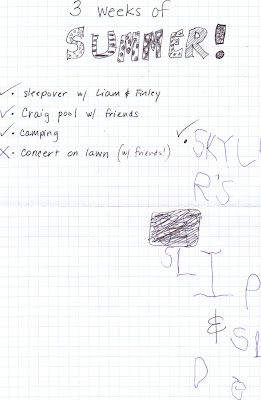 3 weeks of
SUMMER!
✓ • sleepover w/ Liam & Finley
✓ • Craig pool w/ friends
✓ • camping
X • concert on lawn (w/ friends!)
✓ • SKYL
R'S
SL
I P
& SL
D